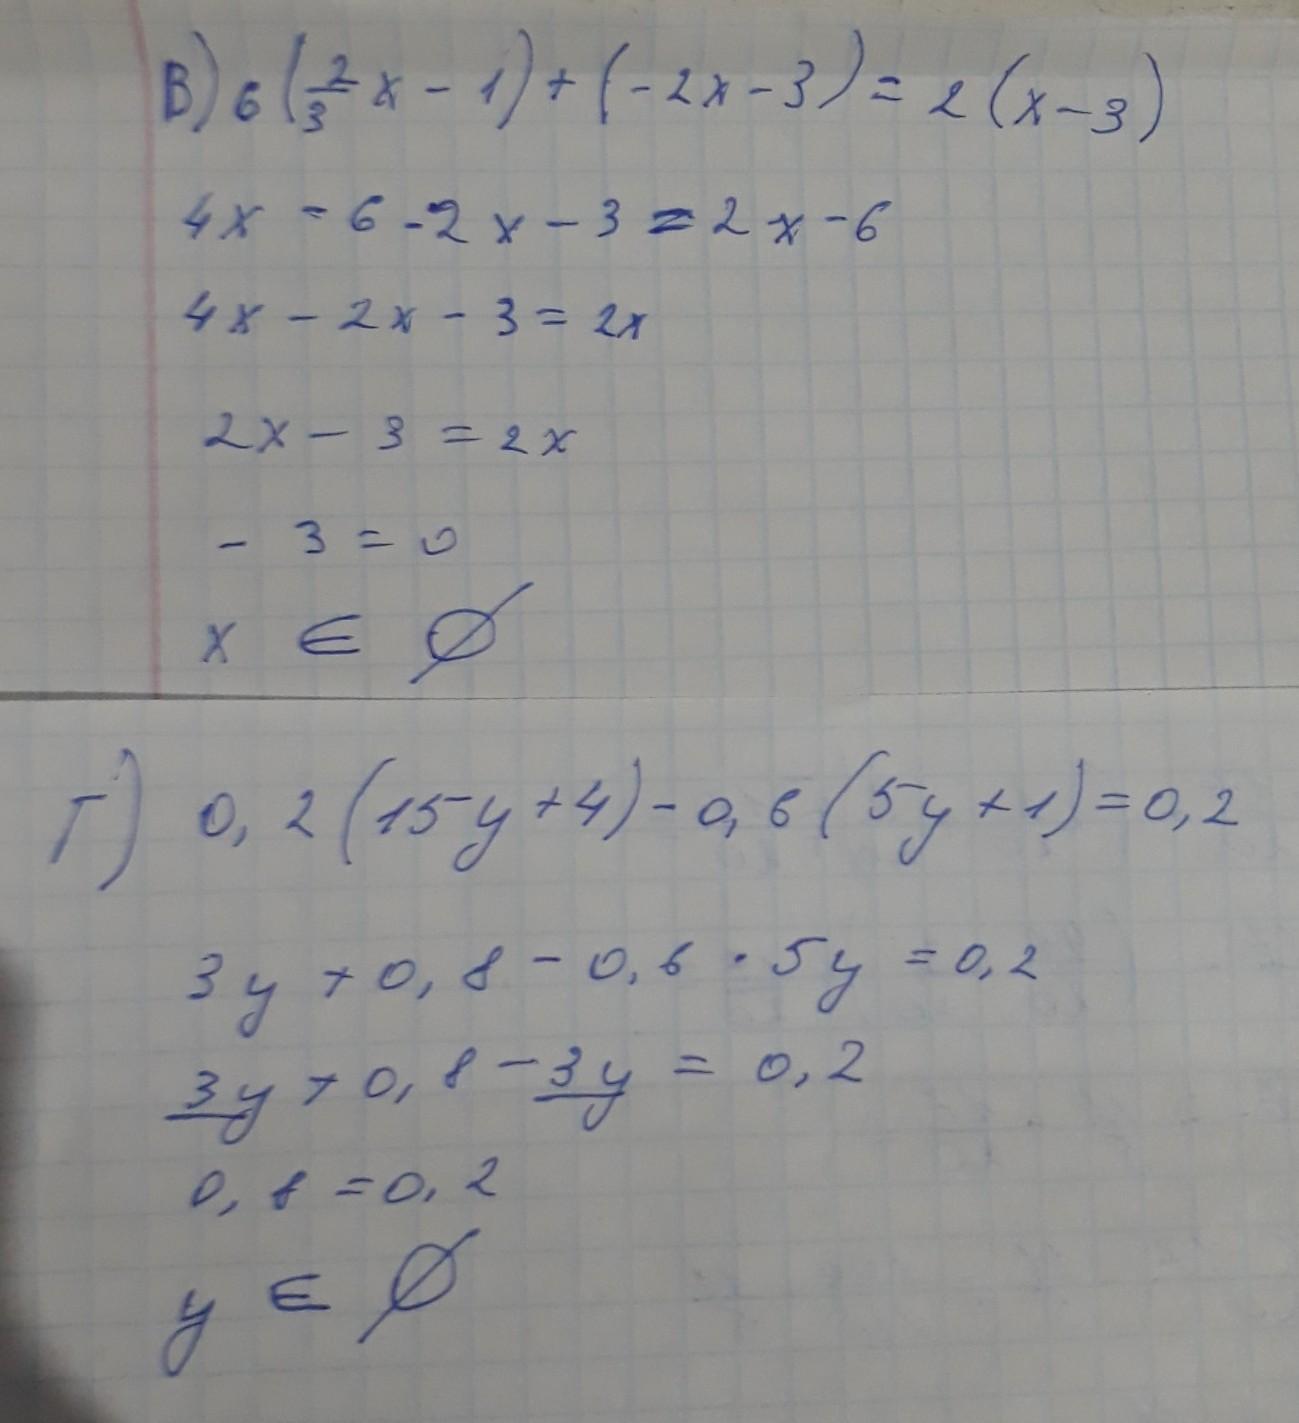 В) 6(2/3 x - 1) + (-2x - 3) = 2(x - 3)
4x - 6 - 2x - 3 = 2x - 6
4x - 2x - 3 = 2x
2x - 3 = 2x
- 3 = 0
x ∈ ∅
Г) 0,2(15y + 4) - 0,6(5y + 1) = 0,2
3y + 0,8 - 0,6 · 5y = 0,2
3y + 0,8 - 3y = 0,2
0,8 = 0,2
y ∈ ∅